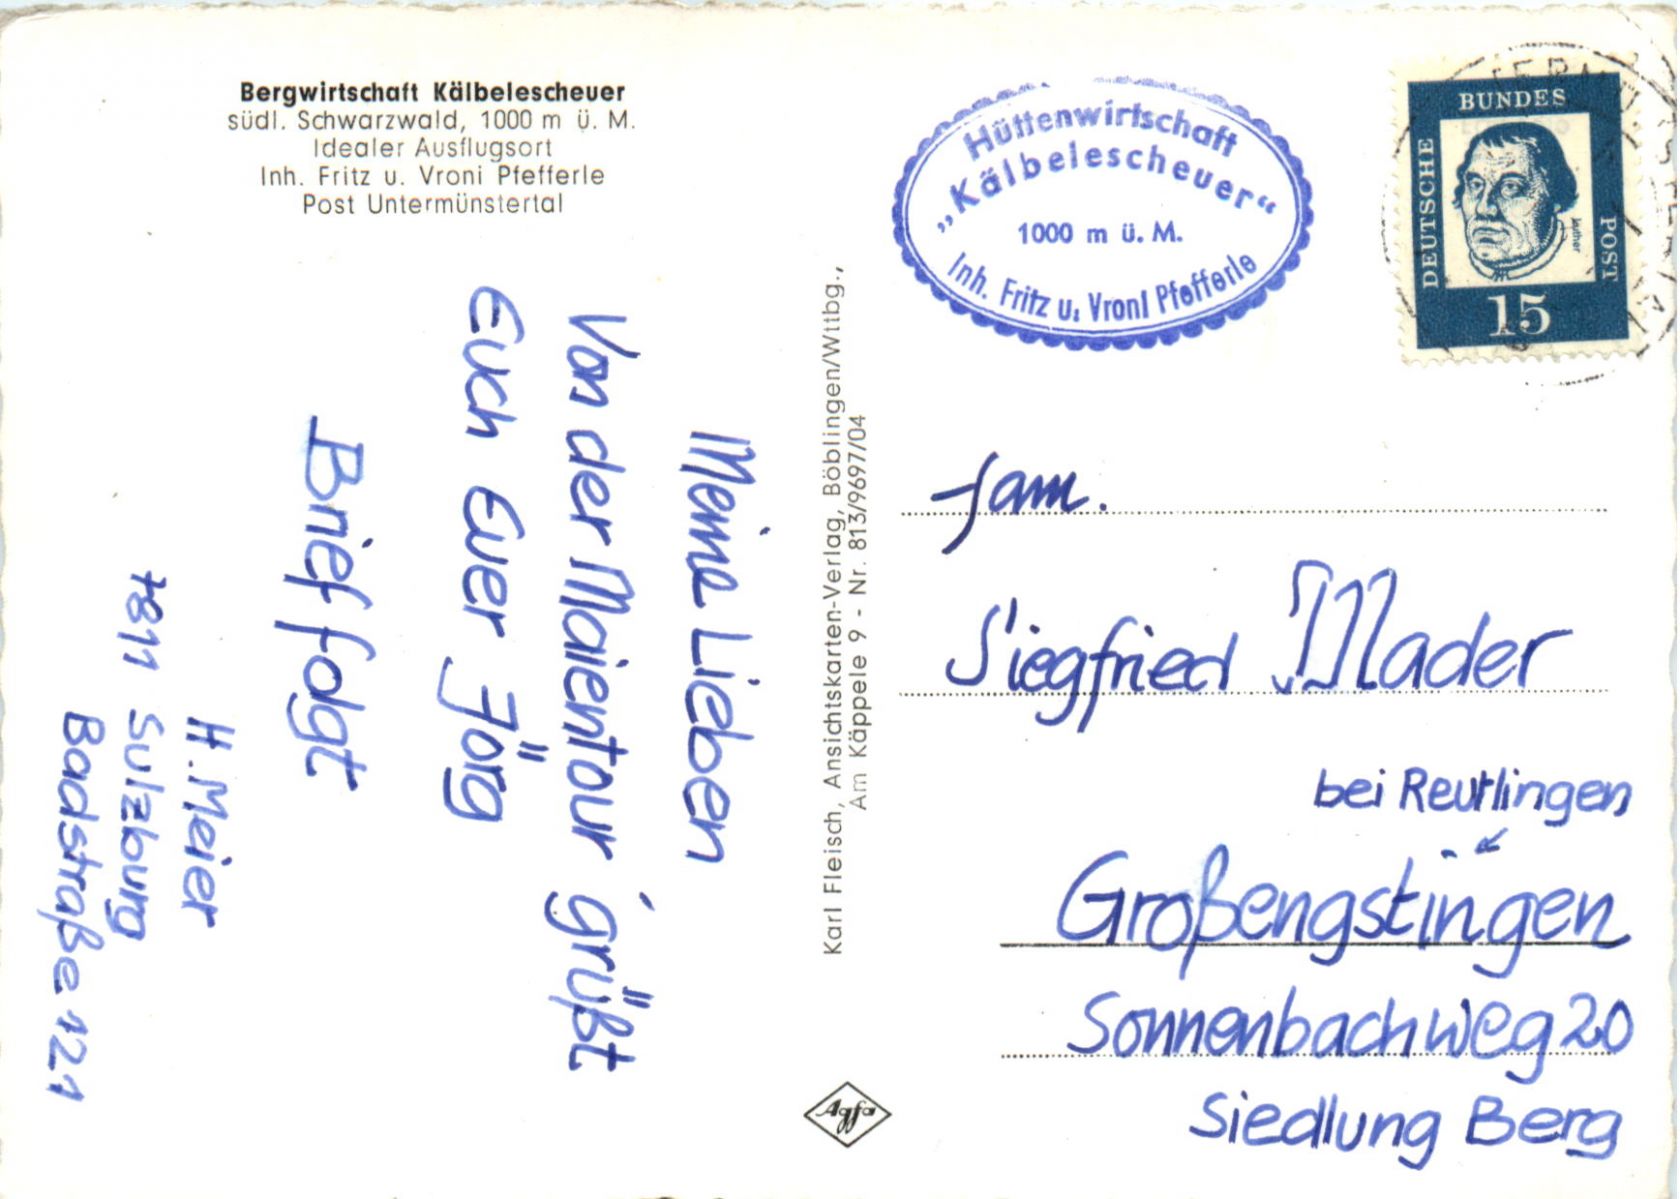 Bergwirtschaft Kälbelescheuer
südl. Schwarzwald, 1000 m ü. M.
Idealer Ausflugsort
Inh. Fritz u. Vroni Pfefferle
Post Untermünstertal
Meine Lieben
Von der Maientour grüßt
Euch Euer Jörg
Brief folgt
H. Meier
7811 Sulzburg
Badstraße 121
Karl Fleisch, Ansichtskarten-Verlag, Böblingen/Wttbg.,
Am Käppele 9 - Nr. 813/9697/04
Agfa
Hüttenwirtschaft
„Kälbelescheuer“
1000 m ü. M.
Inh. Fritz u. Vroni Pfefferle
DEUTSCHE
BUNDES
POST
Luther
15
Fam.
Siegfried Mader
bei Reutlingen
Großengstingen
Sonnenbachweg 20
Siedlung Berg